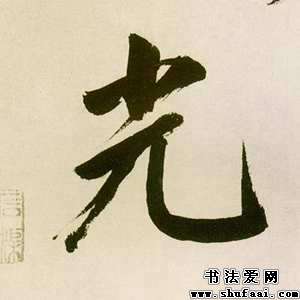 光
书法爱网
www.shufaai.com